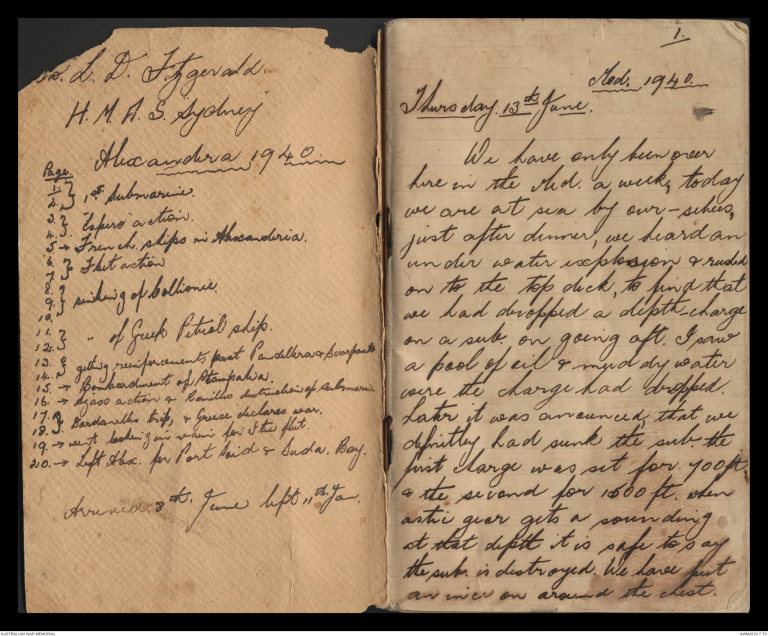 L. D. Fitzgerald
H. M. A. S. Sydney
Alexandera 1940
Page
1. } 1st Submarine.
2.
3. } "Espero" action.
4.
5 → French ships in Alexanderia.
6. } Fleet action
7.
8. } sinking of Collionie
9.
10.
11. } " of Greek Petrol ship.
12.
13. } getting reinforcements past Pandellera & Scarpanto
14.
15. → Bombardment of Stampahia.
16. → Szaso action & Bonillo destruction of Submarine
17. } Dardanelles trip, & Greece declares war.
18.
19. → went looking in vain for I the flt.
20. → Left Alex. for Port Said & Suda. Bay.
Arrived 8th June left 11th Jan.
1.
Med. 1940.
Thursday 13th June.
We have only been over
here in the Med. a week, today
we are at sea by our-selves,
just after dinner, we heard an
under water explosion & rushed
on to the top deck, to find that
we had dropped a depth-charge
on a sub. on going aft. I saw
a pool of oil & muddy water
were the charge had dropped.
Later it was anounced, that we
definitley had sunk the sub. the
first charge was set for 700ft
& the second for 1500 ft. when
astic gear gets a sounding
at that depth it is safe to say
the sub. is destroyed. We have put
an ince on around the chest.
AUSTRALIAN WAR MEMORIAL